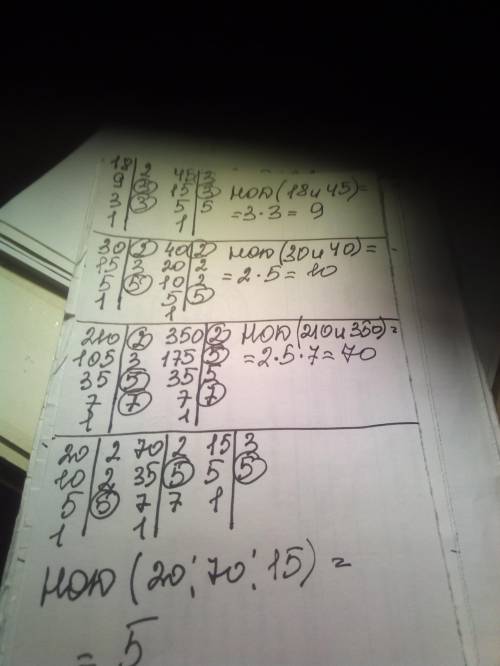 18 | 2 45 | 3
9 | 3 15 | 3 НОД (18 и 45) =
3 | 3 5 | 5 = 3 · 3 = 9
1 | 1 |
30 | 2 40 | 2 НОД (30 и 40) =
15 | 3 20 | 2 = 2 · 5 = 10
5 | 5 10 | 2
1 | 5 | 5
1 |
210 | 2 350 | 2 НОД (210 и 350) =
105 | 3 175 | 5 = 2 · 5 · 7 = 70
35 | 5 35 | 5
7 | 7 7 | 7
1 | 1 |
20 | 2 70 | 2 15 | 3
10 | 2 35 | 5 5 | 5
5 | 5 7 | 7 1 |
1 | 1 |
НОД (20; 70; 15) =
= 5